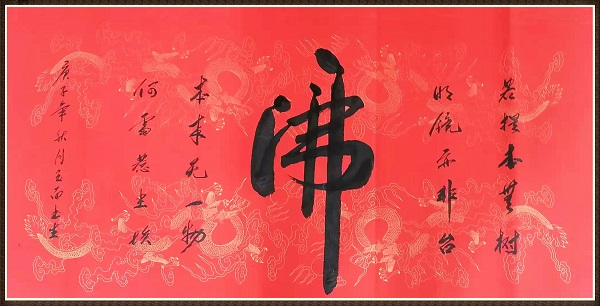 菩提本無树
明镜亦非台
佛
本来无一物
何需惹尘埃
庚子年秋月